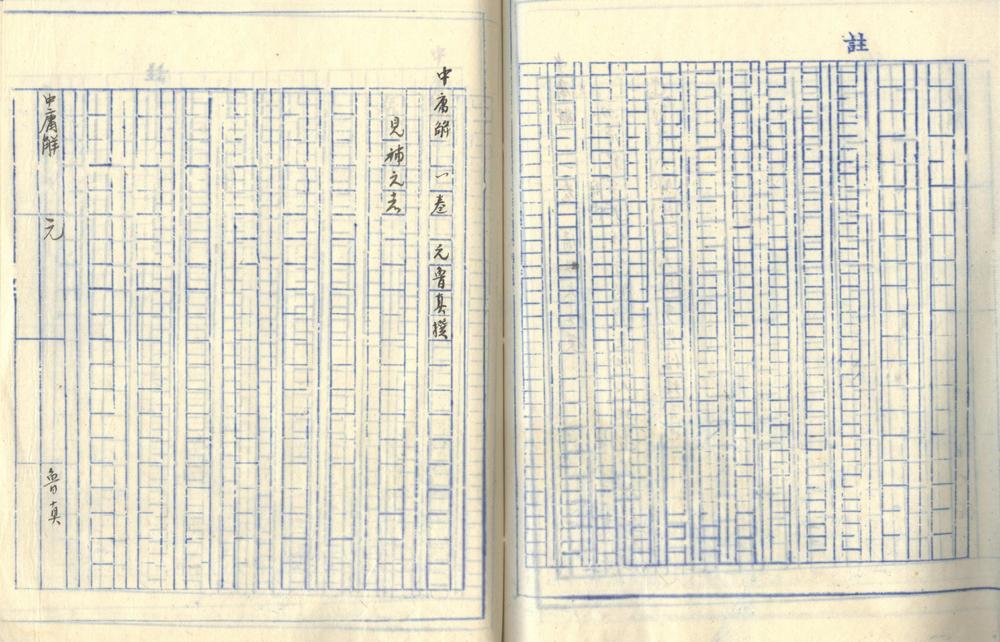 註
中庸解 一卷 元魯真撰
見補元志
中庸解 元 魯真